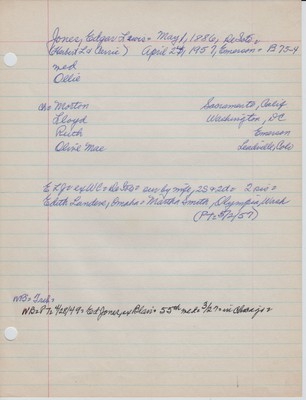 Jones, Edgar Lewis = May 1, 1886, DeSoto =
(Robert L & Carrie) April 27, 1957, Emerson = B 75-4
med
Ollie
ch = Morton Sacramento, Calif
Lloyd Washington, DC
Ruth Emerson
Olive Mae Leadville, Colo
E L J = ex WC = DeSoto = surv by wife, 2S & 2d = 2 sis =
Edith Landers, Omaha = Martha Smith, Olympia, Wash
(PT = 5/2/57)
WB = Trib =
WB = PT = 4/28/49 = Ed Jones, ex Blair = 55th wed = 3/27 = in Chicago =